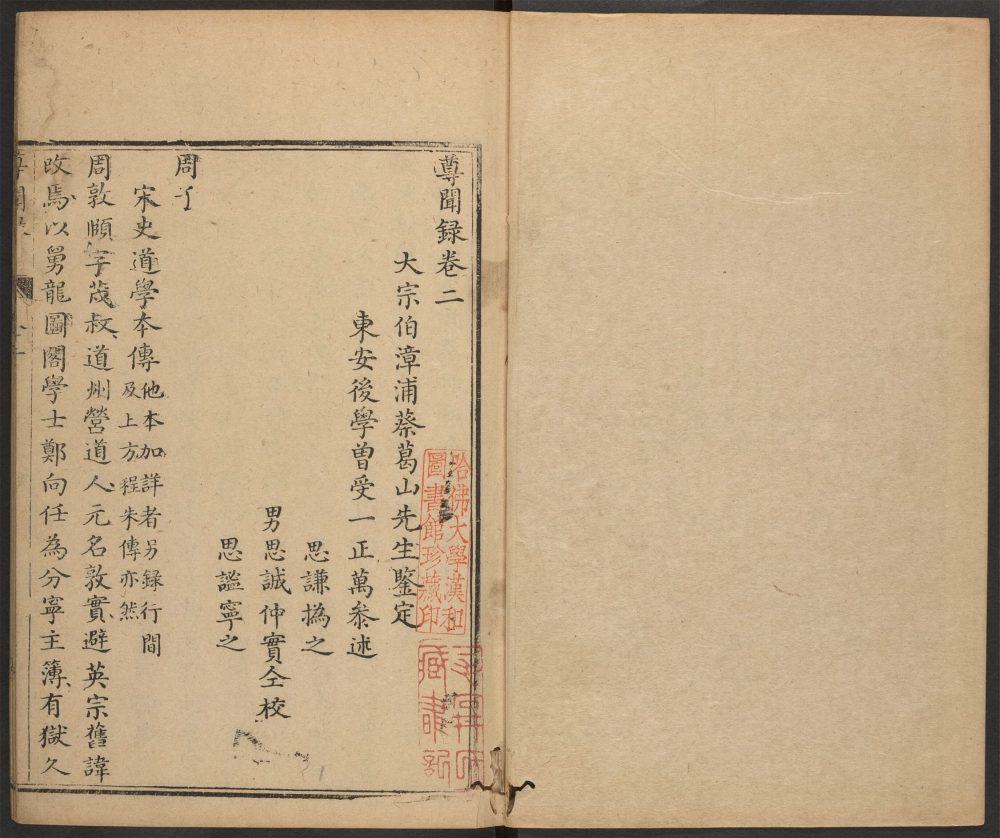 尊聞録卷二
大宗伯漳浦蔡葛山先生鑒定
東安後學曽受一正萬叅述
思謙撝之
男思誠仲實仝校
思謐寧之
周子
宋史道學本傳他本加詳者另録行間
及上方程朱傳亦然
周敦頤字茂叔道州營道人元名敦實避英宗舊諱
改焉以舅龍圖閣學士鄭向任為分寧主簿有獄久
尊聞录
哈佛大學漢和
圖書館珍藏印
藏書記